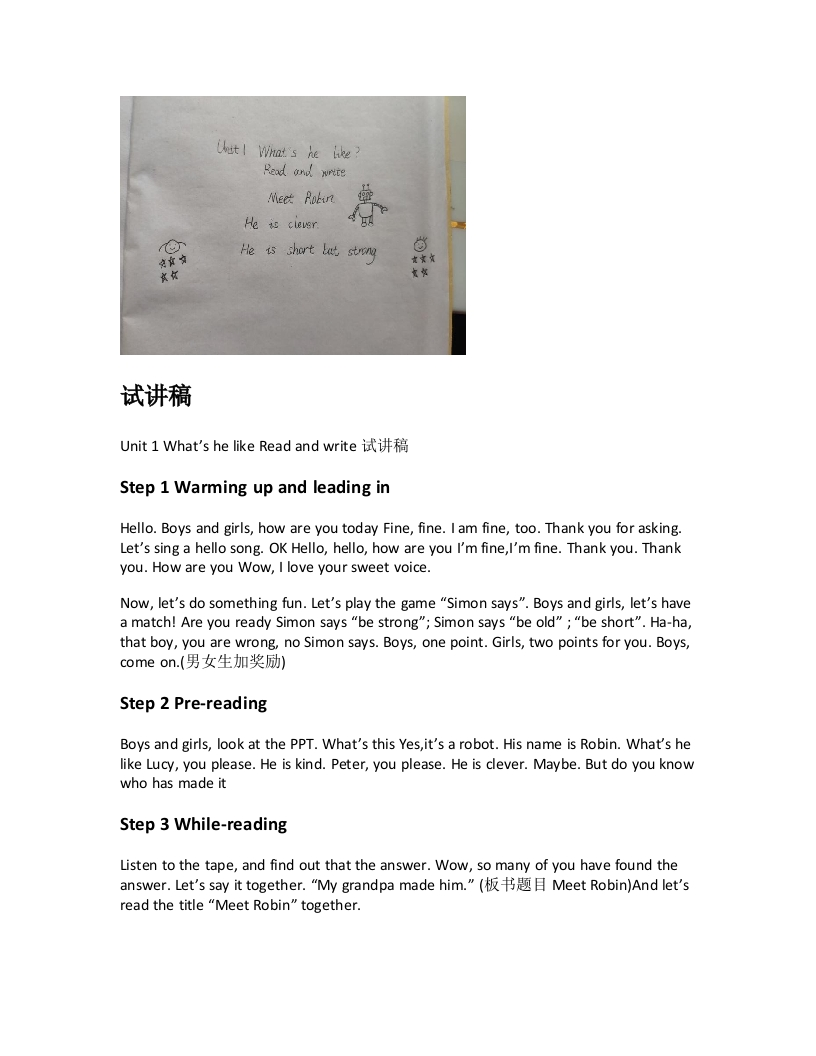 Unit 1 What's he like?
Read and write
Meet Robin
He is clever.
He is short but strong
试讲稿
Unit 1 What’s he like Read and write 试讲稿
Step 1 Warming up and leading in
Hello. Boys and girls, how are you today Fine, fine. I am fine, too. Thank you for asking.
Let’s sing a hello song. OK Hello, hello, how are you I’m fine,I’m fine. Thank you. Thank
you. How are you Wow, I love your sweet voice.
Now, let’s do something fun. Let’s play the game “Simon says”. Boys and girls, let’s have
a match! Are you ready Simon says “be strong”; Simon says “be old” ; “be short”. Ha-ha,
that boy, you are wrong, no Simon says. Boys, one point. Girls, two points for you. Boys,
come on.(男女生加奖励)
Step 2 Pre-reading
Boys and girls, look at the PPT. What’s this Yes,it’s a robot. His name is Robin. What’s he
like Lucy, you please. He is kind. Peter, you please. He is clever. Maybe. But do you know
who has made it
Step 3 While-reading
Listen to the tape, and find out that the answer. Wow, so many of you have found the
answer. Let’s say it together. “My grandpa made him.” (板书题目 Meet Robin)And let’s
read the title “Meet Robin” together.